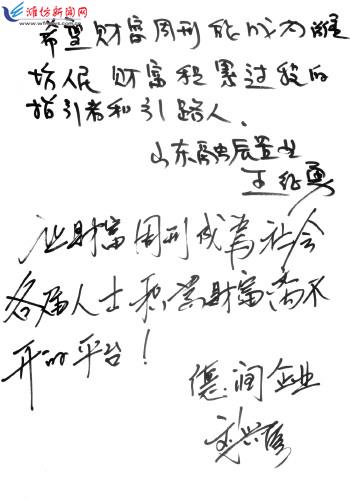 潍坊新闻网
www.wfnews.com.cn
希望财富周刊能成为潍
坊人民财富积累过程的
指引者和引路人.
山东融辰置业
让财富周刊成为社会
各届人士积累财富离不
开的平台!
德润企业